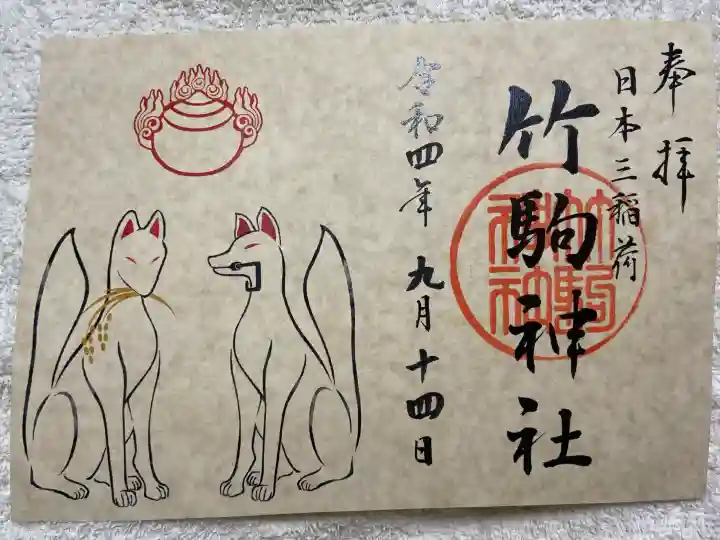 奉拝
日本三稲荷
竹駒神社
竹駒
神社
令和四年 九月十四日